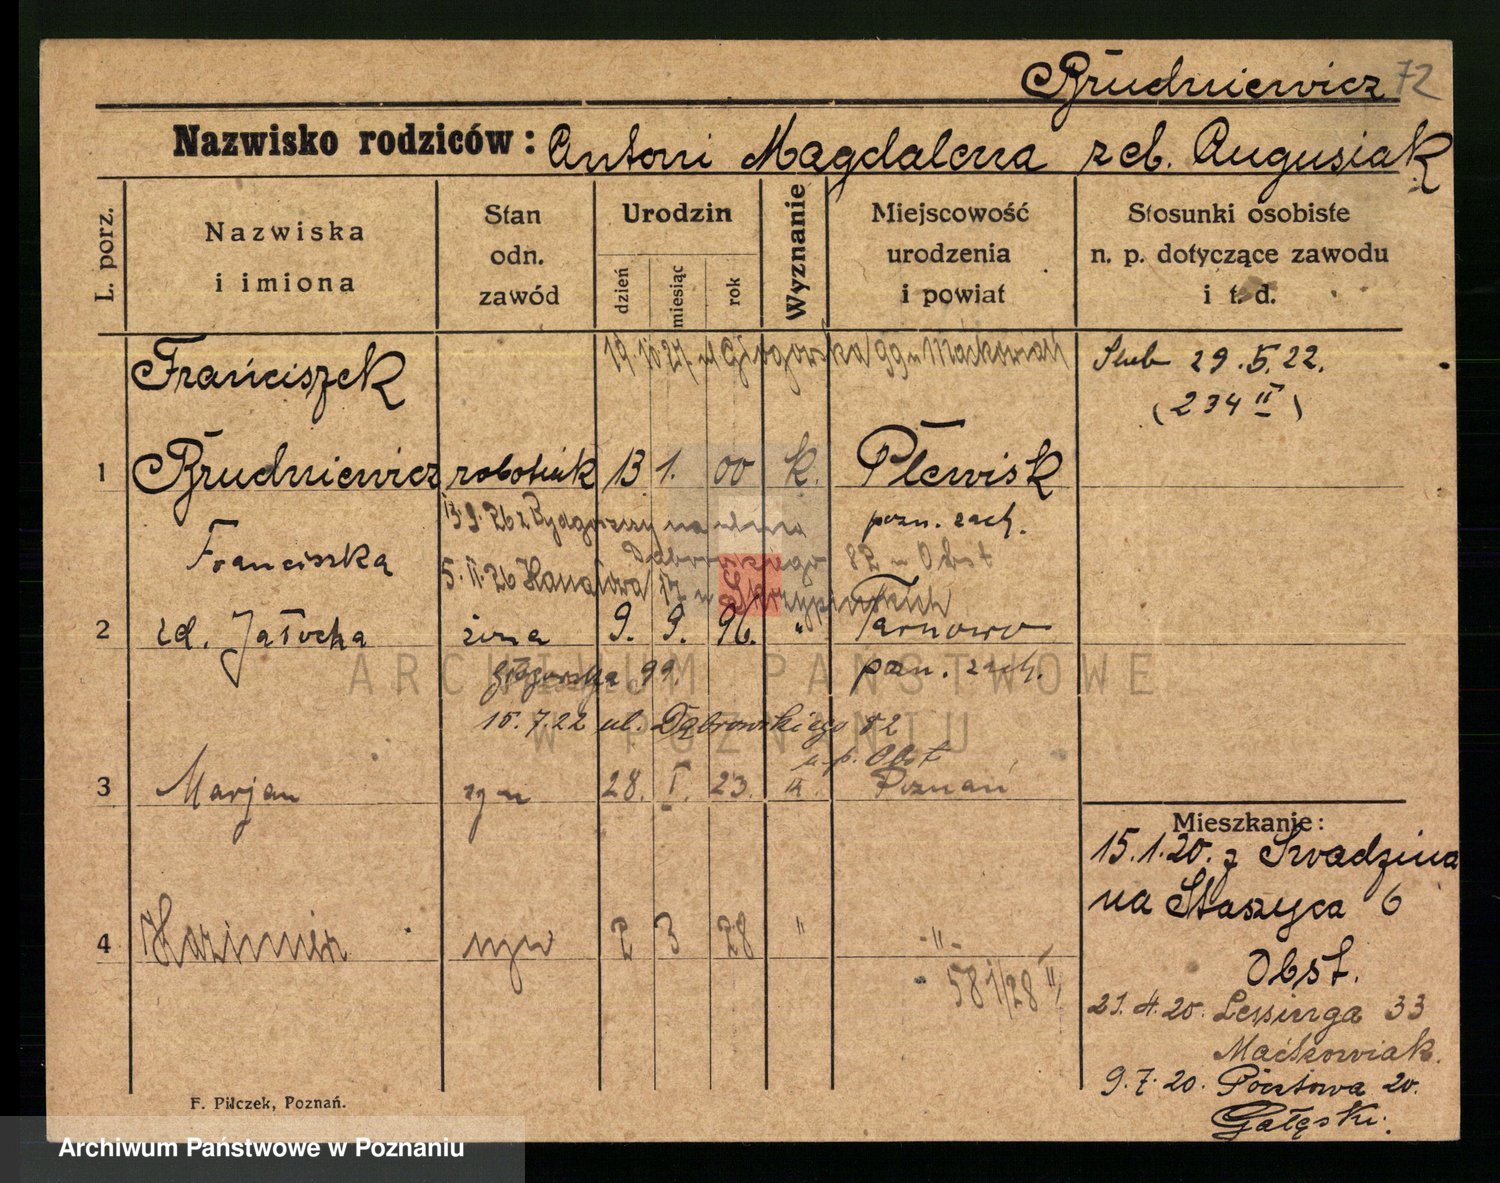 Brudniewicz 72
Nazwisko rodziców: Antoni Magdalena z cb. Augusiak
L. porz.
Nazwiska i imiona
Stan odn. zawód
Urodzin
dzień
miesiąc
rok
Wyznanie
Miejscowość urodzenia i powiat
Stosunki osobiste n. p. dotyczące zawodu i t. d.
19. 10 27 Głogowska 99 u Maćkowiak
Franciszek
Ślub 29.5.22.
(234 II)
1 Brudniewicz robotnik 13 1. 00 k. Plewisk
13.9.26 z Bydgoszczy na ulica
pozn. zach.
Franciszka
Dąbrowskiego 82 u Obst
5. II. 26 Kanałowa 17 u
2 zd. Jałocha żona 9. 9. 96. " Tarnowo
pozn. zach.
Głogowska 99.
15.7.22 ul. Dąbrowskiego 82
u p. Obst
3 Marjan syn 28. I. 23. k. Poznań
4 Kazimierz syn 2 3 28 " -"-
581/28 II
Mieszkanie:
15.1.20. z Swadzina
na Staszyca 6
Obst.
21. 4. 20. Lessinga 33
Maćkowiak.
9.7.20. Pocztowa 20.
Gałęski.
F. Pilczek, Poznań.
ARCHIWUM PAŃSTWOWE
W POZNANIU
Archiwum Państwowe w Poznaniu